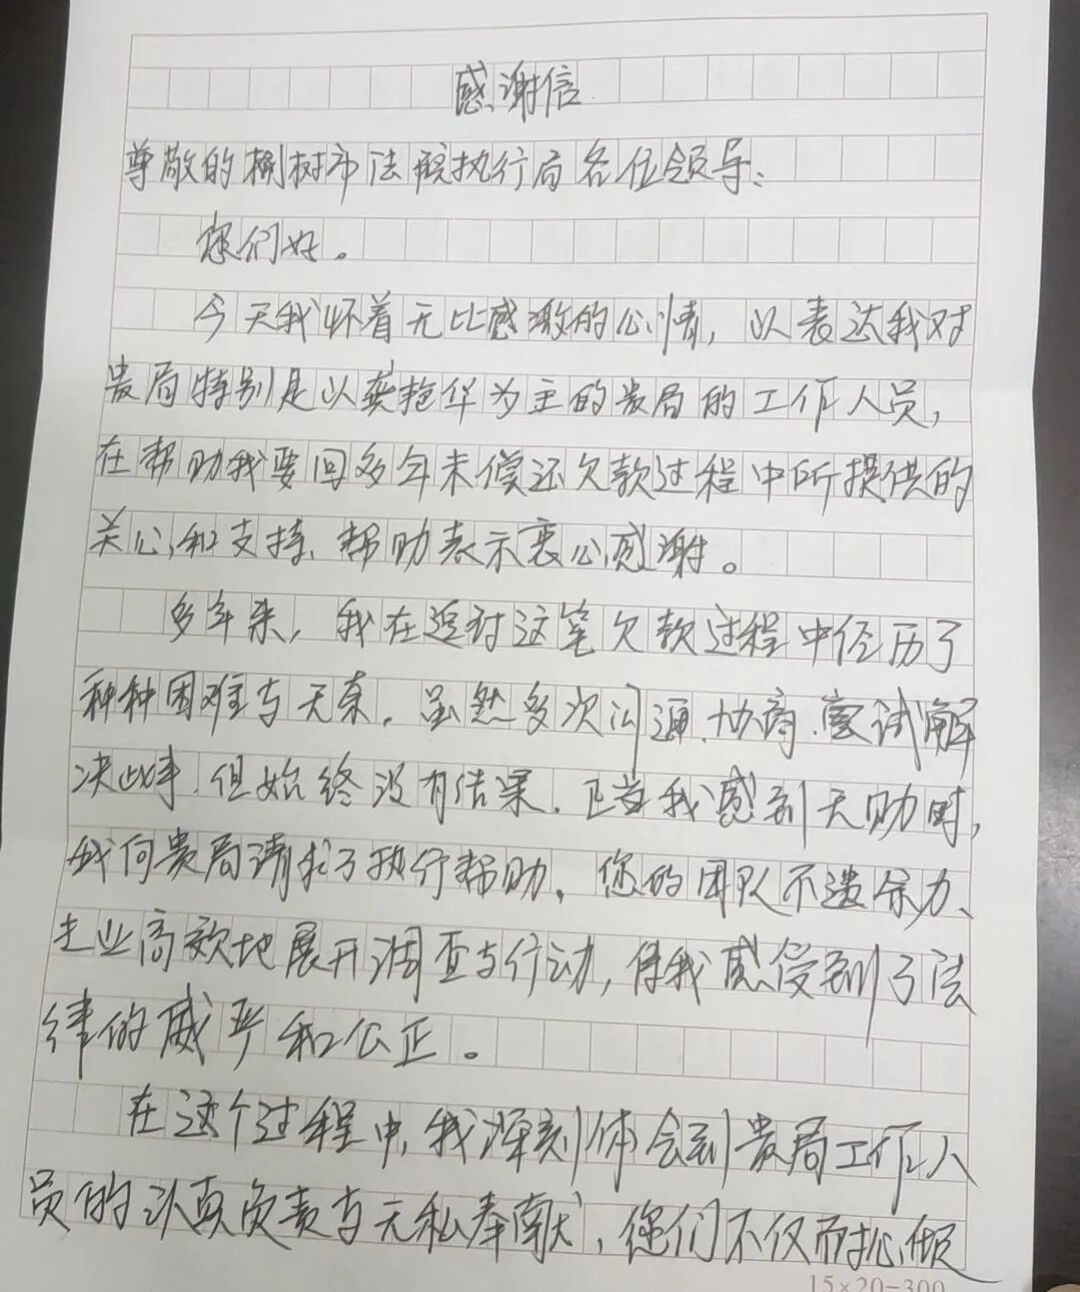 感谢信
尊敬的樹树市法院执行局各位领导：
您们好。
今天我怀着无比感激的心情，以表达我对
贵局特别是以龚艳华为主的贵局的工作人员，
在帮助我要回多年未偿还欠款过程中所提供的
关心和支持、帮助表示衷心感谢。
多年来，我在追讨这笔欠款过程中经历了
种种困难与无奈。虽然多次沟通、协商、尝试解
决此事，但始终没有结果。正当我感到无助时，
我向贵局请求了执行帮助。您的团队不遗余力、
专业高效地展开调查与行动，使我感受到了法
律的威严和公正。
在这个过程中，我深刻体会到贵局工作人
员的认真负责与无私奉献，您们不仅耐心倾
15×20=300